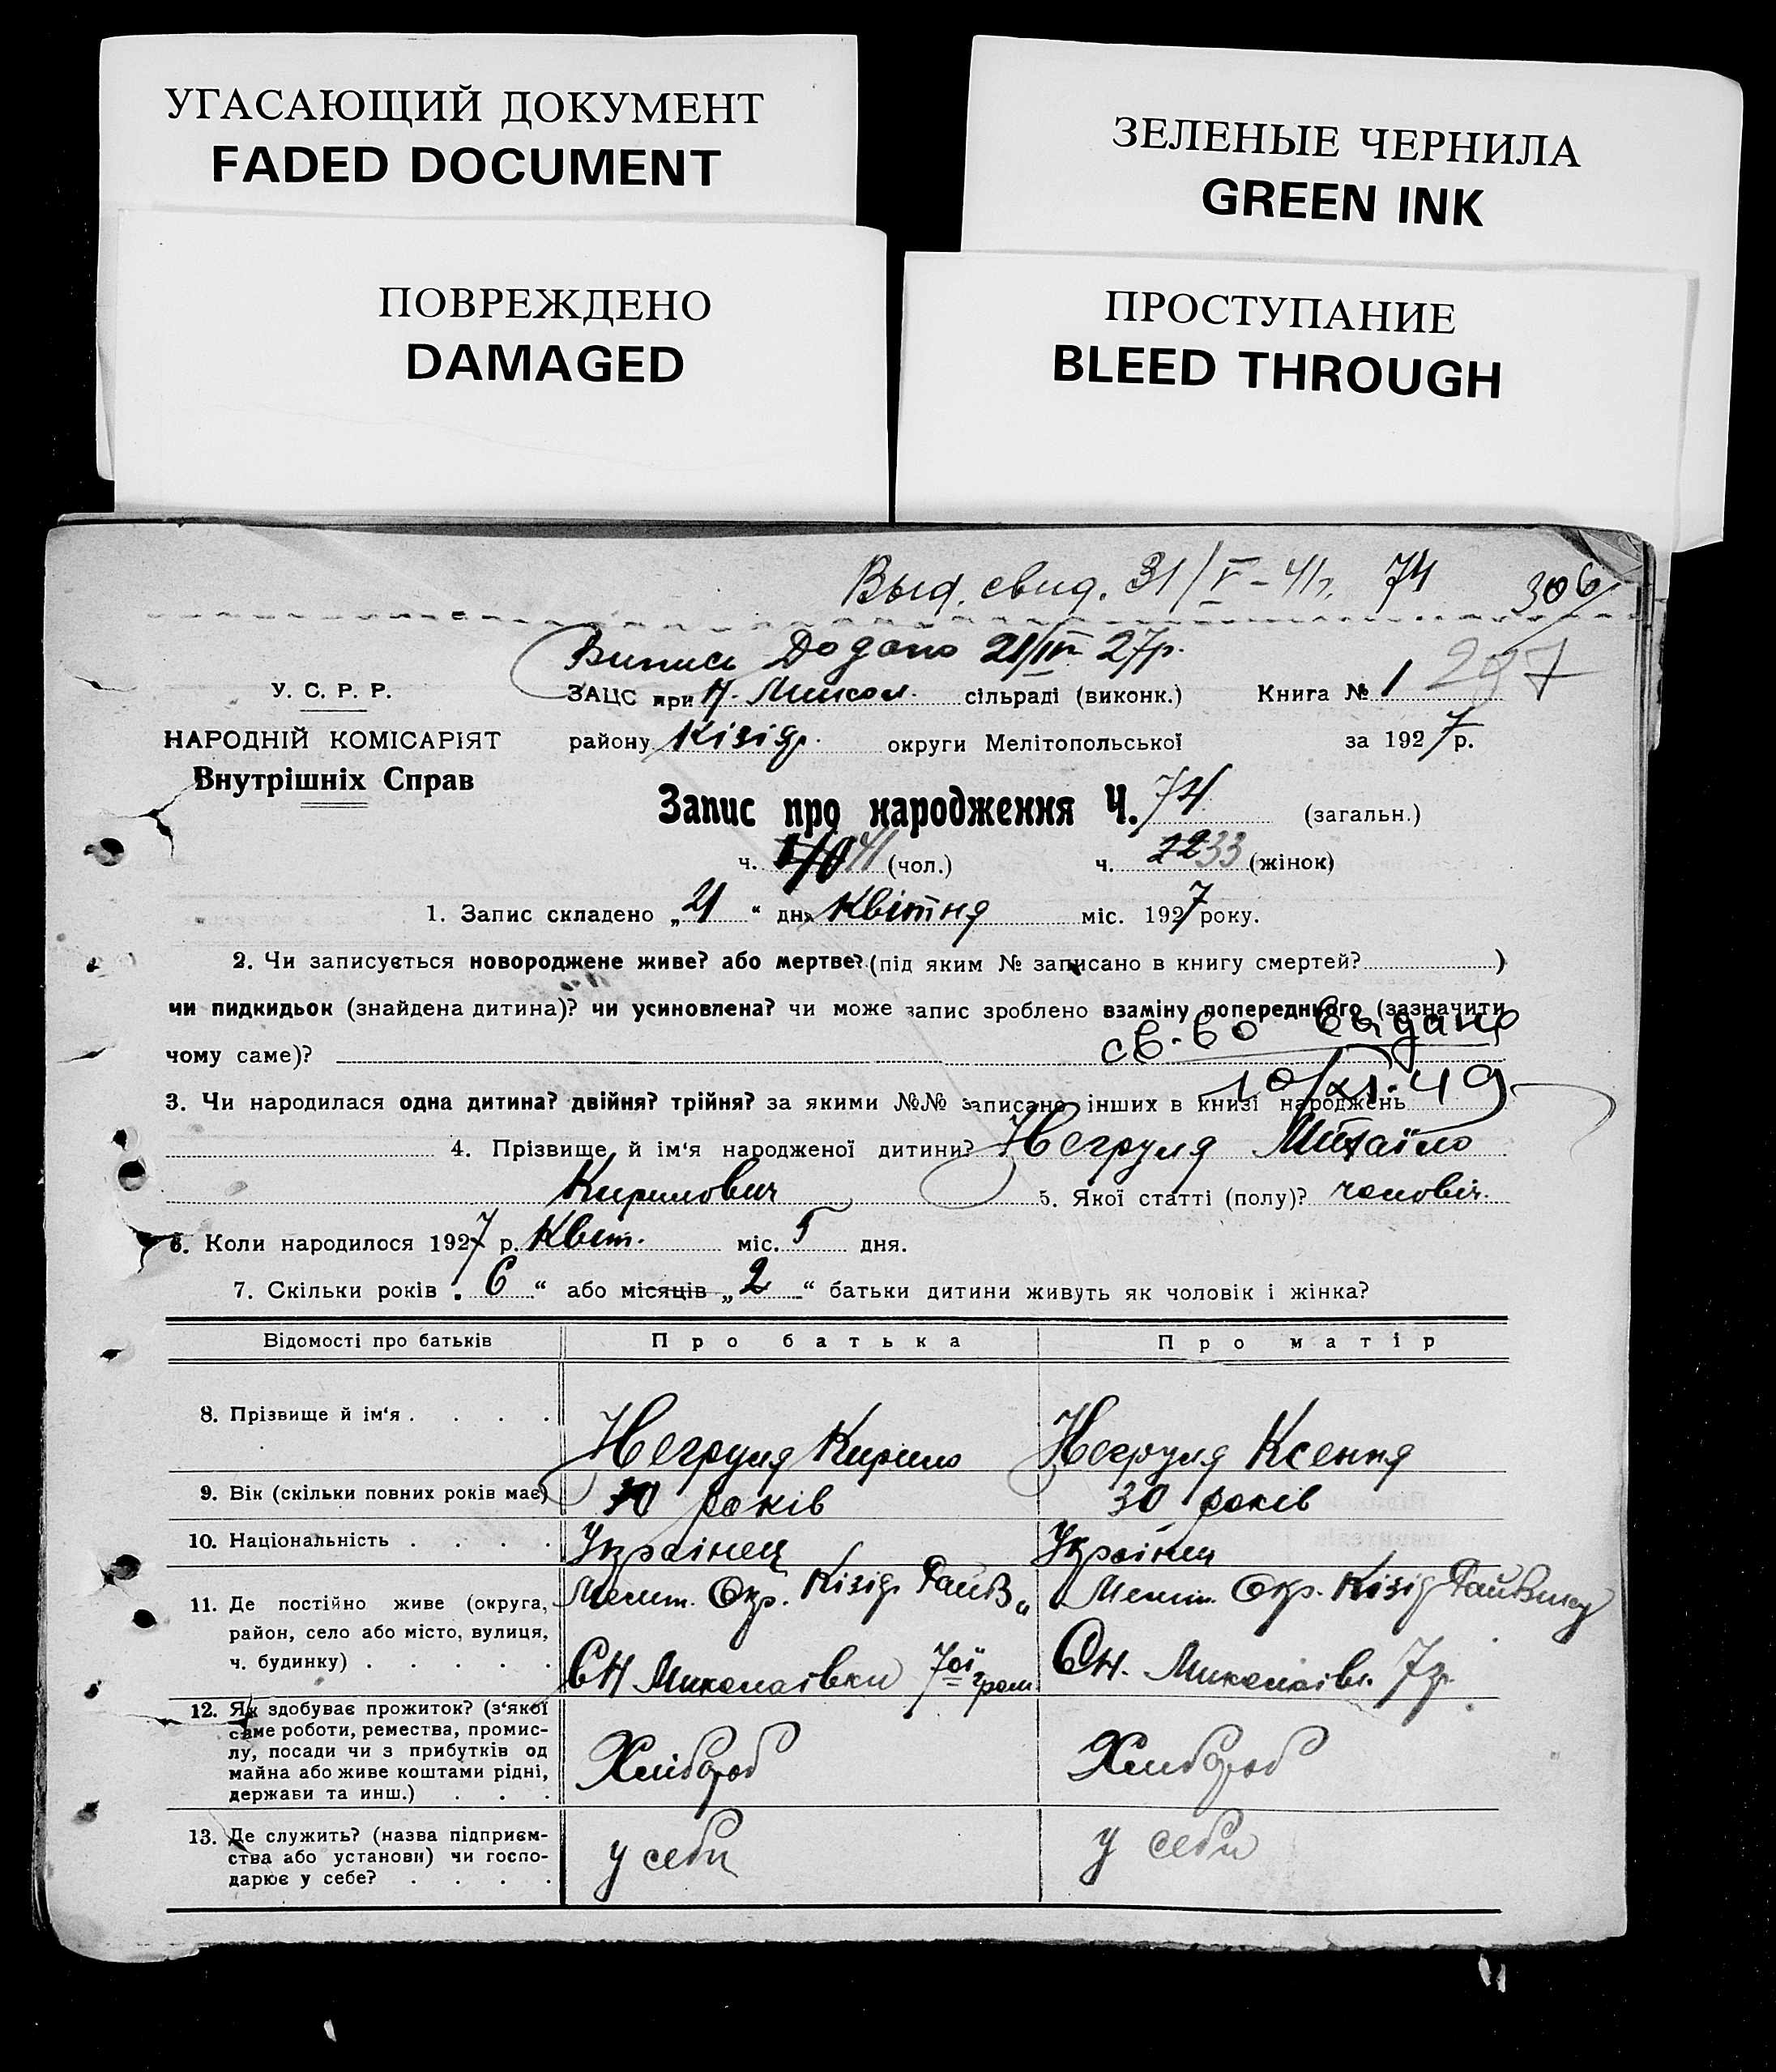 УГАСАЮЩИЙ ДОКУМЕНТ
FADED DOCUMENT
ЗЕЛЕНЫЕ ЧЕРНИЛА
GREEN INK
ПОВРЕЖДЕНО
DAMAGED
ПРОСТУПАНИЕ
BLEED THROUGH
Выд. свид. 31/V-41г. 74 306
Випись Додано 21/IV 27р.
У. С. Р. Р.
ЗАЦС при Н. Микол. сільраді (виконк.) Книга № 1 297
НАРОДНІЙ КОМІСАРІЯТ
району Кізіяр. округи Мелітопольської за 1927 р.
Внутрішніх Справ
Запис про народження Ч. 74 (загальн.)
ч. 41 (чол.) ч. 33 (жінок)
1. Запис складено „21“ дня Квітня міс. 1927 року.
2. Чи записується новороджене живе? або мертве? (під яким № записано в книгу смертей? )
чи пидкидьок (знайдена дитина)? чи усиновлена? чи може запис зроблено взаміну попереднього (зазначити
чому саме)? св-во выдано
10/XI-49
3. Чи народилася одна дитина? двійня? трійня? за якими №№ записано інших в книзі народжень
4. Прізвище й ім‘я народженої дитини? Негруля Михаїло
Кирилович 5. Якої статті (полу)? чоловіч.
6. Коли народилося 1927 р. Квіт. міс. 5 дня.
7. Скільки років „6“ або місяців „2“ батьки дитини живуть як чоловік і жінка?
Відомості про батьків Про батька Про матір
8. Прізвище й ім‘я . . . . Негруля Кирило Негруля Ксенія
9. Вік (скільки повних років має) 30 років 30 років
10. Національність . . . . Українец Українец
11. Де постійно живе (округа,
район, село або місто, вулиця,
ч. будинку) . . . . .
Мелит. Окр. Кізіяр. Рай
СН Миколаівки 7ої гром.
Мелит. Окр. Кізіяр
СН. Миколаівк. 7г.
12. Як здобуває прожиток? (з‘якої
саме роботи, ремества, промис-
лу, посади чи з прибутків од
майна або живе коштами рідні,
держави та инш.) . . .
Хлібороб Хлибороб
13. Де служить? (назва підприєм-
ства або установи) чи госпо-
дарює у себе? . . . .
у себи у себи